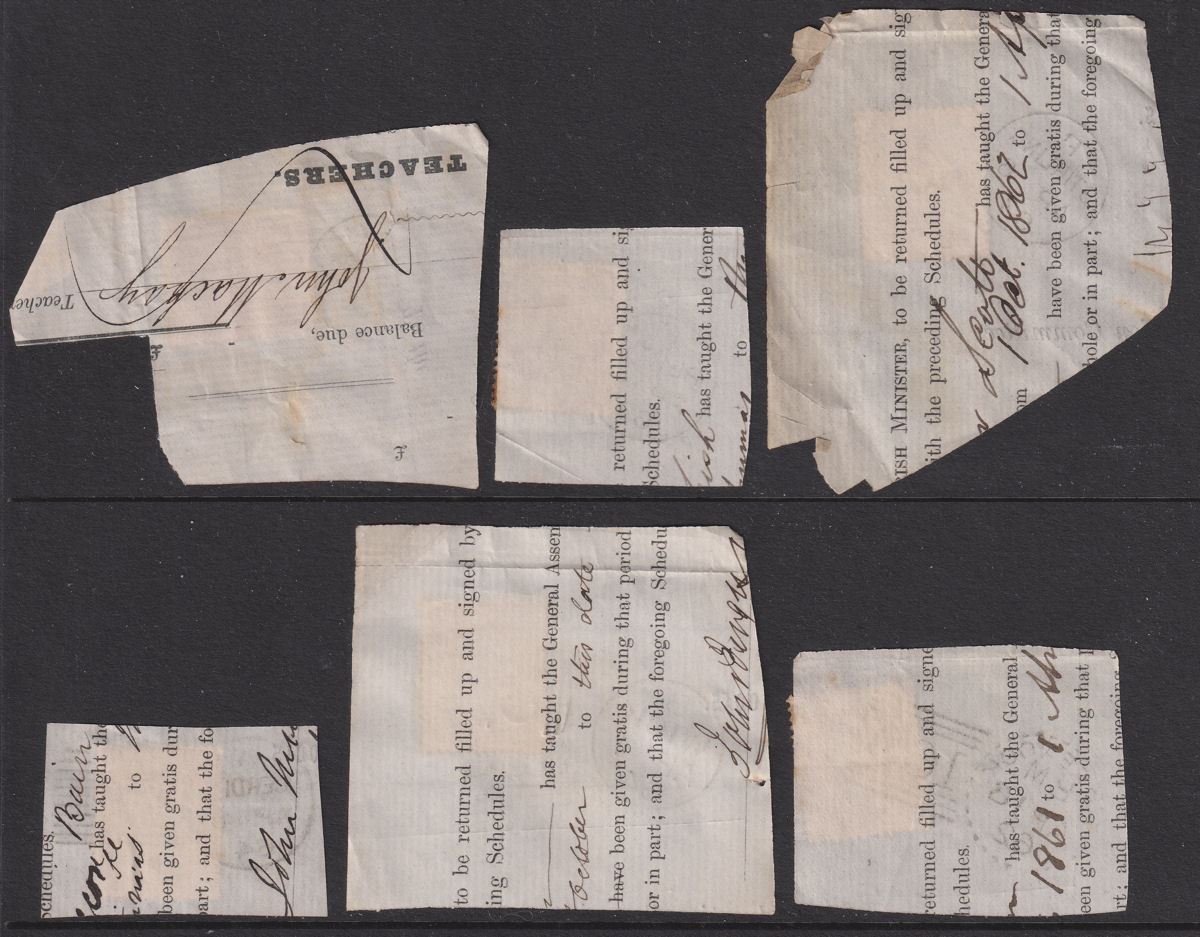 TEACHERS.
John Mackay
Teache
Balance due,
£
£
returned filled up and si
Schedules.
has taught the Gener
to
ISH MINISTER, to be returned filled up and sig
ith the preceding Schedules.
Scott — has taught the Genera
om 1 Oct. 1862 to 1
have been given gratis during that
hole or in part; and that the foregoing
chedules.
Bain
has taught the
to
been given gratis dur
art; and that the fo
John
to be returned filled up and signed by
ing Schedules.
has taught the General Assem
October to this date
have been given gratis during that period
or in part; and that the foregoing Schedu
John
returned filled up and signe
hedules.
has taught the General
1861 to 1
een given gratis during that p
rt; and that the foregoing